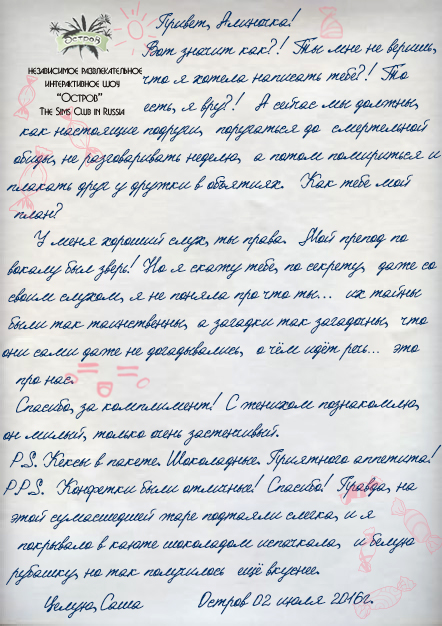 Привет, Алиночка!
ОСТРОВ
Вот значит как?! Ты мне не веришь,
НЕЗАВИСИМОЕ РАЗВЛЕКАТЕЛЬНОЕ
ИНТЕРАКТИВНОЕ ШОУ
"ОСТРОВ"
THE SIMS CLUB IN RUSSIA
что я хотела написать тебе?! То
есть, я вру?! А сейчас мы должны,
как настоящие подруги, поругаться до смертельной
обиды, не разговаривать неделю, а потом помириться и
плакать друг у дружки в объятиях. Как тебе мой
план?
У меня хороший слух, ты права. Мой препод по
вокалу был зверь! Но я скажу тебе, по секрету, даже со
своим слухом, я не поняла про что ты... их тайны
были так таинственны, а загадки так загадочны, что
они сами даже не догадывались, о чём идёт речь... это
про нас.
Спасибо, за комплимент! С женихом познакомлю,
он милый, только очень застенчивый.
P.S. Кексы в пакете. Шоколадные. Приятного аппетита!
P.P.S. Конфетки были отличные! Спасибо! Правда, на
этой сумасшедшей жаре подтаяли слегка, и я
покрывало в каюте шоколадом испачкала, и белую
рубашку, но так получилось ещё вкуснее.
Целую, Саша Остров 02 июля 2016г.